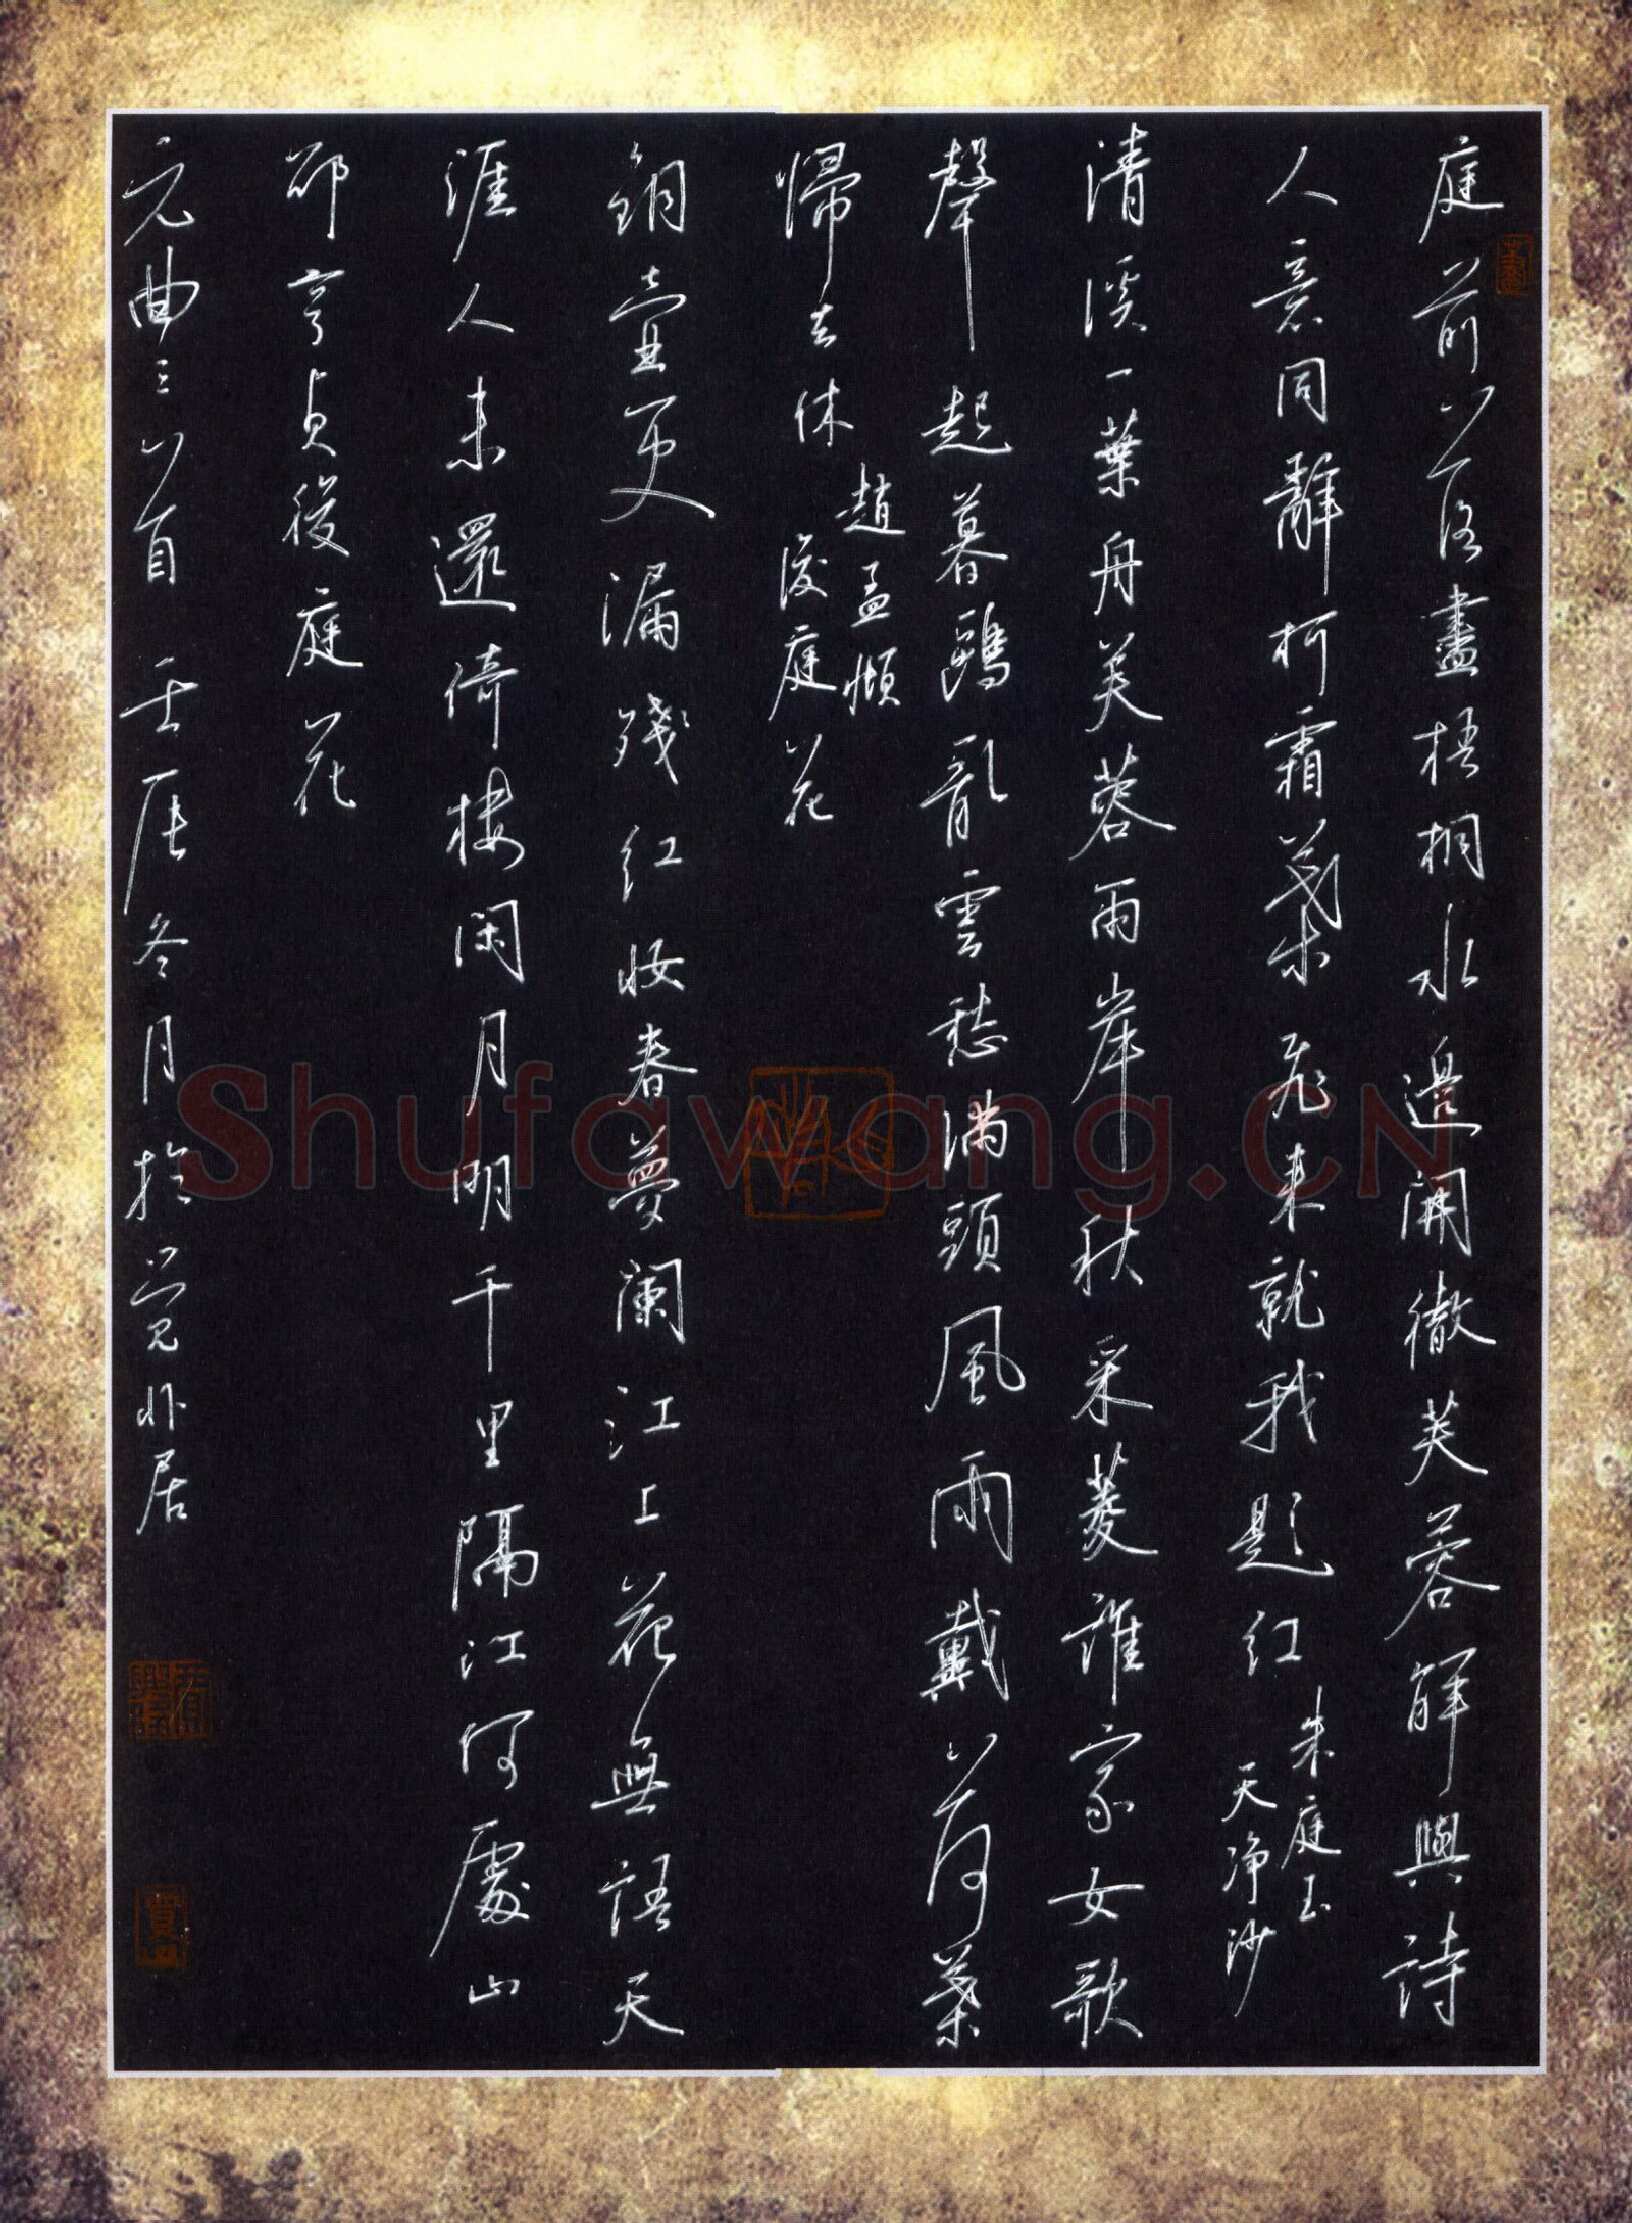 庭前落盡梧桐水邊開徹芙蓉解與詩
人意同辭柯霜葉飛來就我題紅
朱庭玉
天淨沙
清溪一葉舟芙蓉兩岸秋采菱誰家女歌
聲起暮鷗亂雲愁滿頭風雨戴荷葉
歸去休
趙孟頫
後庭花
銅壺更漏殘紅妝春夢闌江上花無語天
涯人未還倚樓閑月明千里隔江何處山
邵亨貞後庭花
元曲三首 壬辰冬月於覺非居
Shufawang.CN